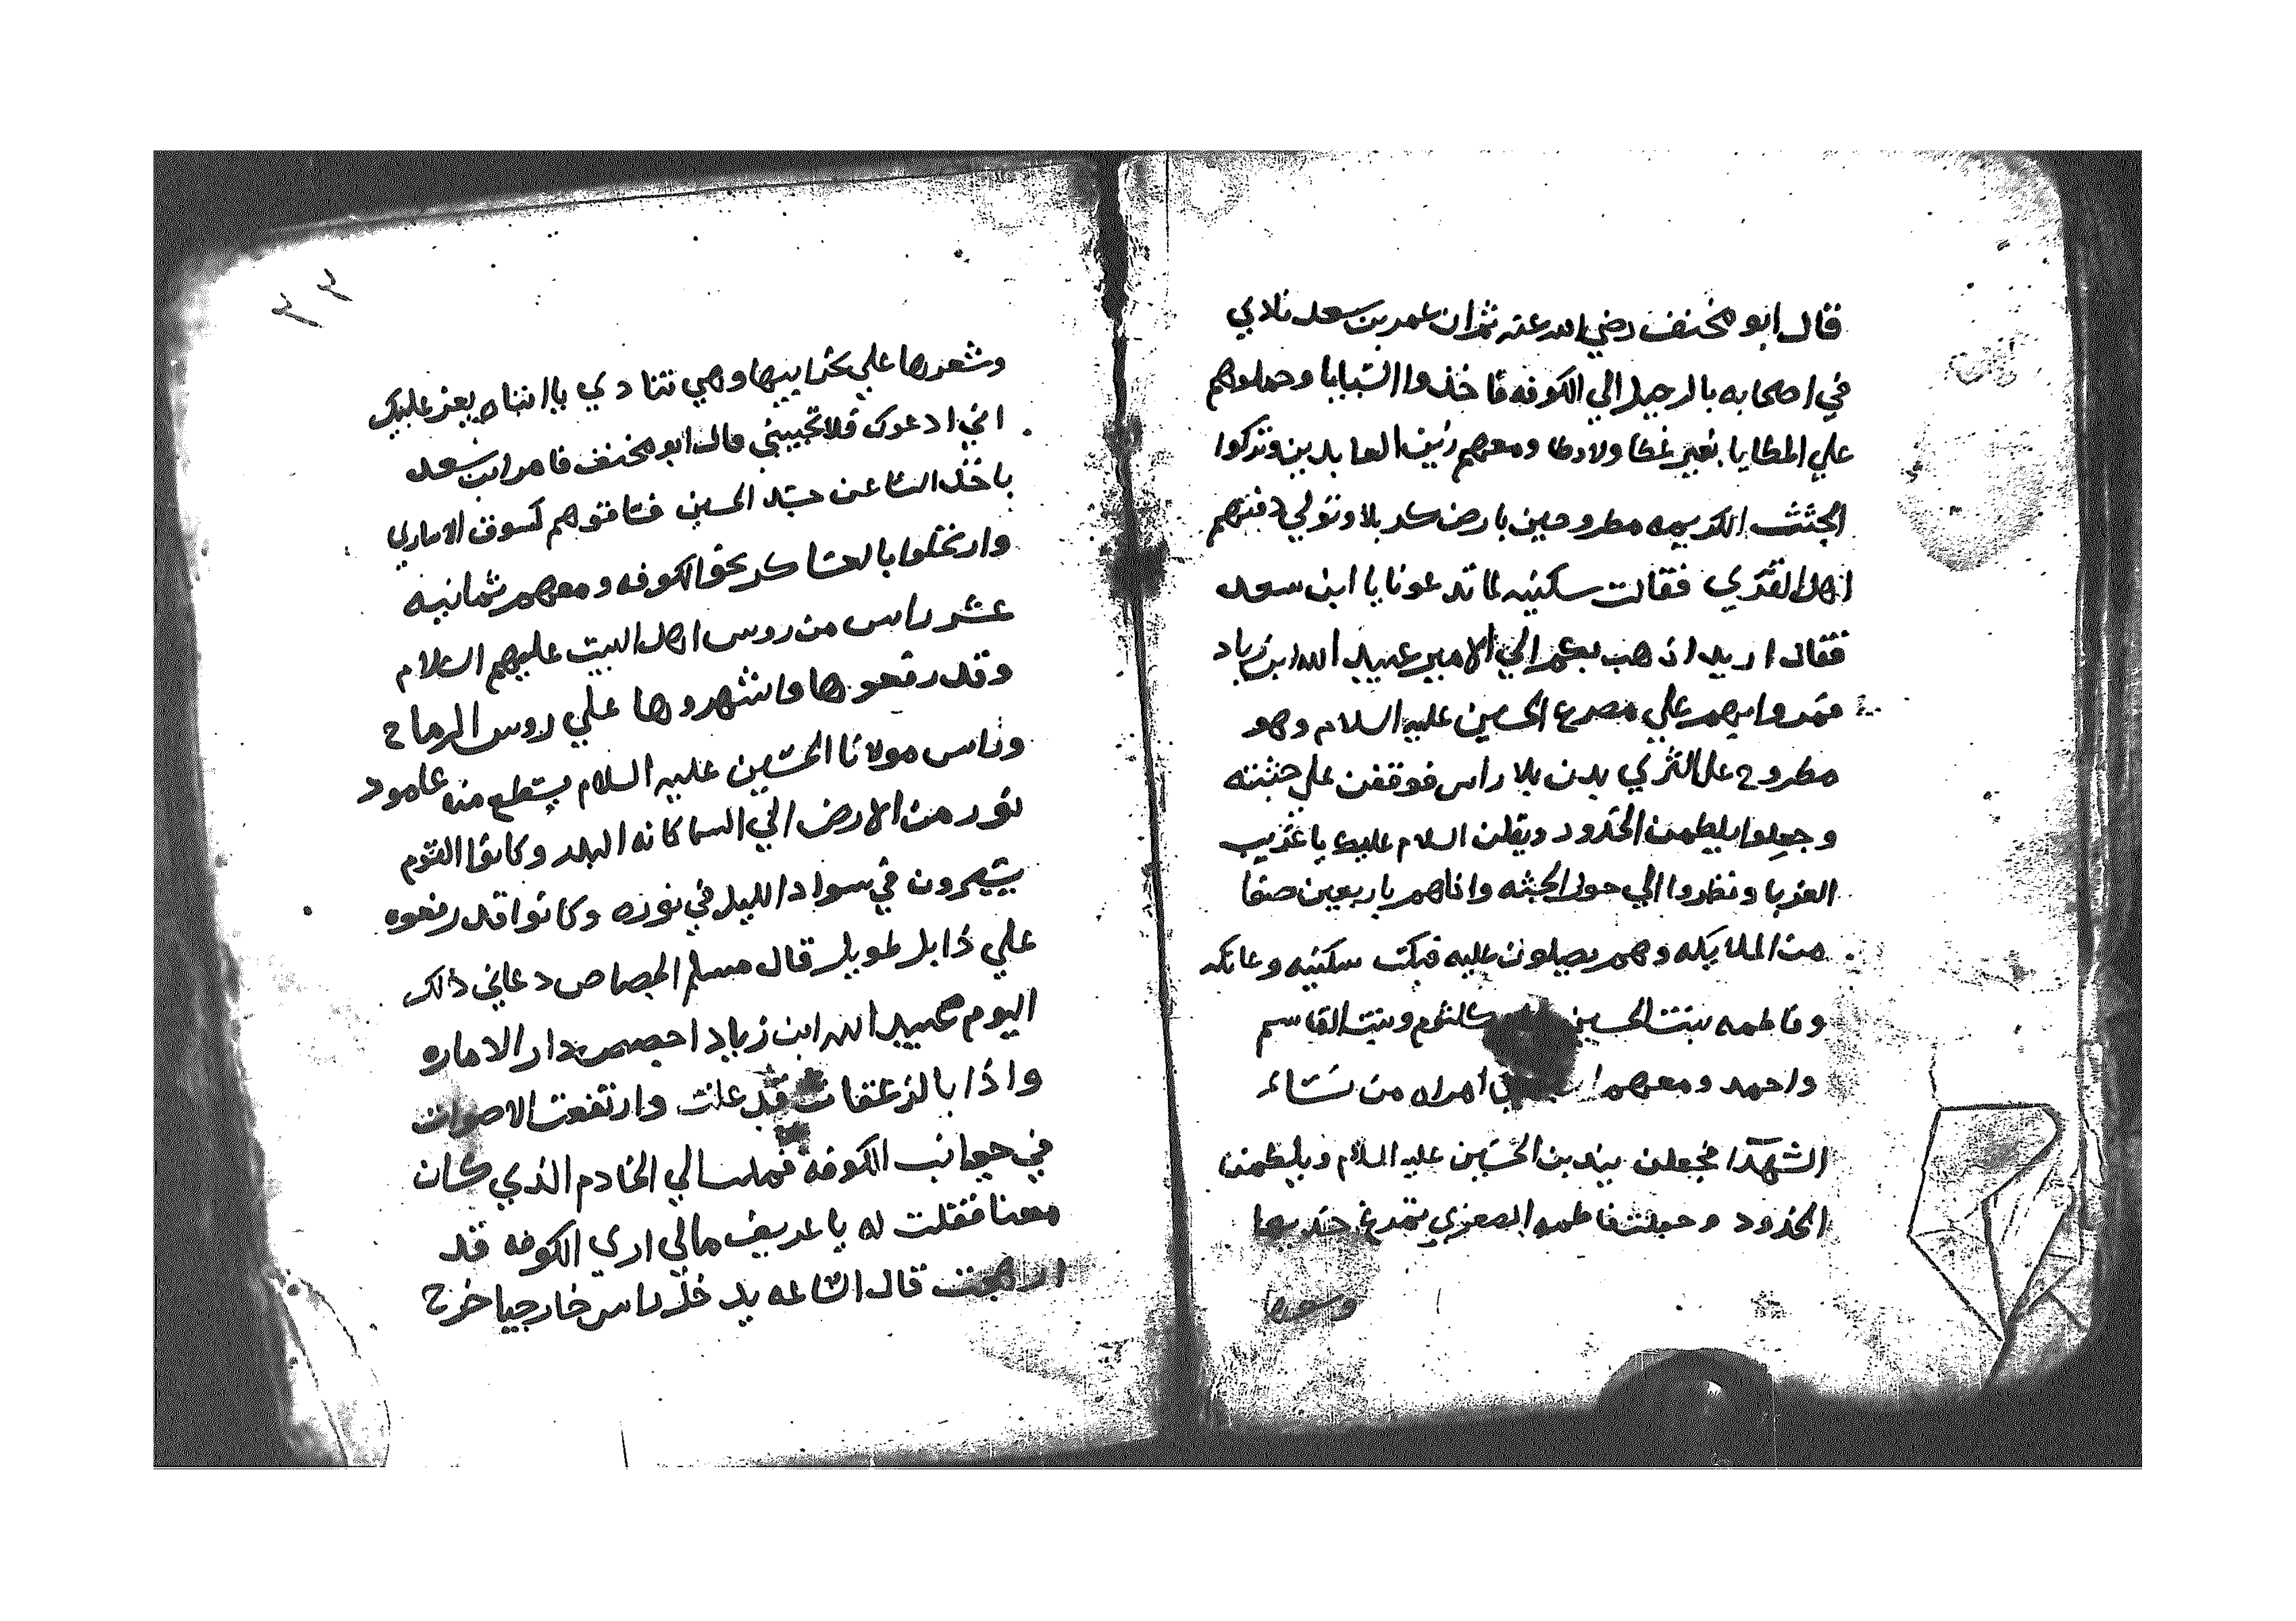 قال ابو مخنف رضي الله عنه ثم ان عمر بن سعد نادي
في اصحابه بالرحيل الي الكوفه فاخذوا السبايا وحملوهم
علي المطايا بغير غطا ولا وطا ومعهم زين العابدين وتركوا
الجثث الكريمه مطروحين بارض كربلا وتولي دفنهم
اهل القري فقالت سكينه لما تدعونا يا ابن سعد
فقال اريد اذهب بكم الي الامير عبيد الله ابن زياد
فمروا بهم علي مصرع الحسين عليه السلام وهو
مطروح علي الثري بدن بلا راس فوقفن علي جثته
وجعلوا يلطمن الخدود ويقلن السلام عليك يا غريب
الغربا ونظروا الي حول الجثه واذاهم باربعين صفا
من الملايكه وهم يصلون عليه فبكت سكينه وعاتكه
وفاطمه بنت الحسين كلثوم وبنت القاسم
واحمد ومعهم امراه من نساء
الشهدآ فجعلن يندبن الحسين عليه السلام ويلطمن
الخدود وجعلت فاطمه الصغري تمرغ خديها
وشعرها
٣٣
وشعرها علي تخداييها وهي تنادي يا ابتاه يعز عليك
اني ادعوك فلا تجيبني قال ابو مخنف فامر ابن سعد
باخذ النساء عن جسد الحسين فساقوهم كسوق الاساري
وارتحلوا بالعساكر نحو الكوفه ومعهم ثمانيه
عشر راس من روس اهل البيت عليهم السلام
وقد رفعوها واشهروها علي روس الرماح
وراس مولانا الحسين عليه السلام يسطع منه عامود
نور من الارض الي السما كانه البدر وكانوا القوم
يسيرون في سواد الليل في نوره وكانوا قد رفعوه
علي ذابل طويل قال مسلم الجصاص دعاني ذلك
اليوم عبيد الله ابن زياد اجصص دار الاماره
واذا بالزعقات قد علت وارتفعت الاصوات
في جوانب الكوفه الي الخادم الذي كان
معنا فقلت له يا عريف مالي اري الكوفه قد
ارهجت قال الساعه يدخل راس خارجيا خرج